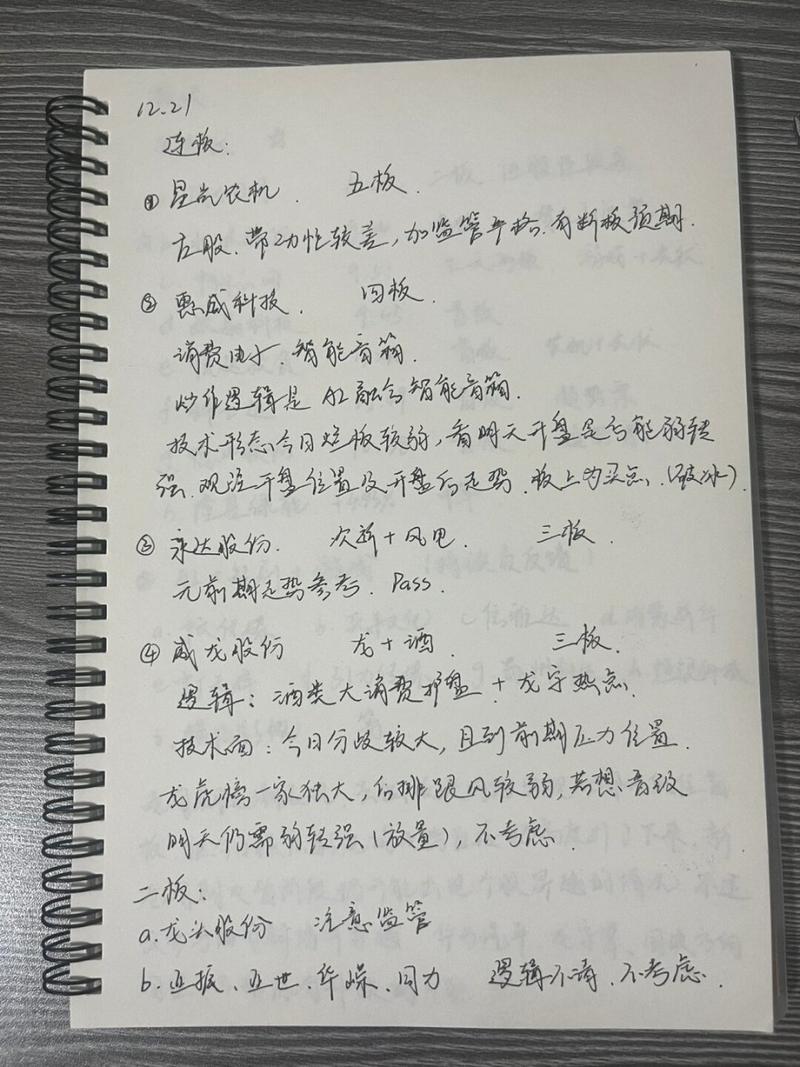 12.21
连板:
① 星光农机. 五板.
庄股. 带动性较差, 加监管严格. 有断板预期.
② 惠威科技. 四板.
消费电子. 智能音箱.
炒作逻辑是 AI 融合智能音箱.
技术形态今日烂板较弱, 看明天开盘是否能弱转
强. 观注开盘位置及开盘后走势. 板上为买点. (破冰).
③ 永达股份. 次新+风电. 三板.
无前期走势参考. Pass.
④ 威龙股份 龙+酒. 三板.
逻辑: 酒类大消费护盘 + 龙字热点.
技术面: 今日分歧较大, 且到前期压力位置.
龙虎榜一家独大, 后排跟风较弱, 若想晋级
明天仍需弱转强(放量), 不考虑.
二板:
a. 龙头股份 注意监管
b. 亚振、亚世、华嵘、同力 逻辑不清. 不考虑.